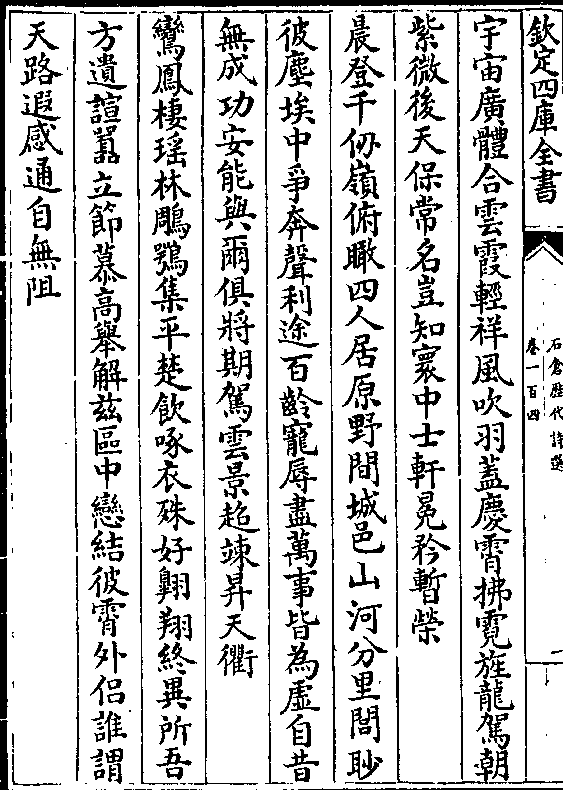 欽定四庫全書
石倉歴代詩選
卷一百四
宇宙廣體合雲霞輕祥風吹羽蓋慶霄拂霓旌龍駕朝
紫微後天保常名豈知寰中士軒冕矜暫榮
晨登千仞嶺俯瞰四人居原野間城邑山河分里閭眇
彼塵埃中爭奔聲利途百齡寵辱盡萬事皆為虛自昔
無成功安能與爾俱將期駕雲景超竦昇天衢
鸞鳳棲瑶林鵰鶚集平楚飲啄衣殊好翺翔終異所吾
方遺諠囂立節慕高舉解兹區中戀結彼霄外侣誰謂
天路遐感通自無阻